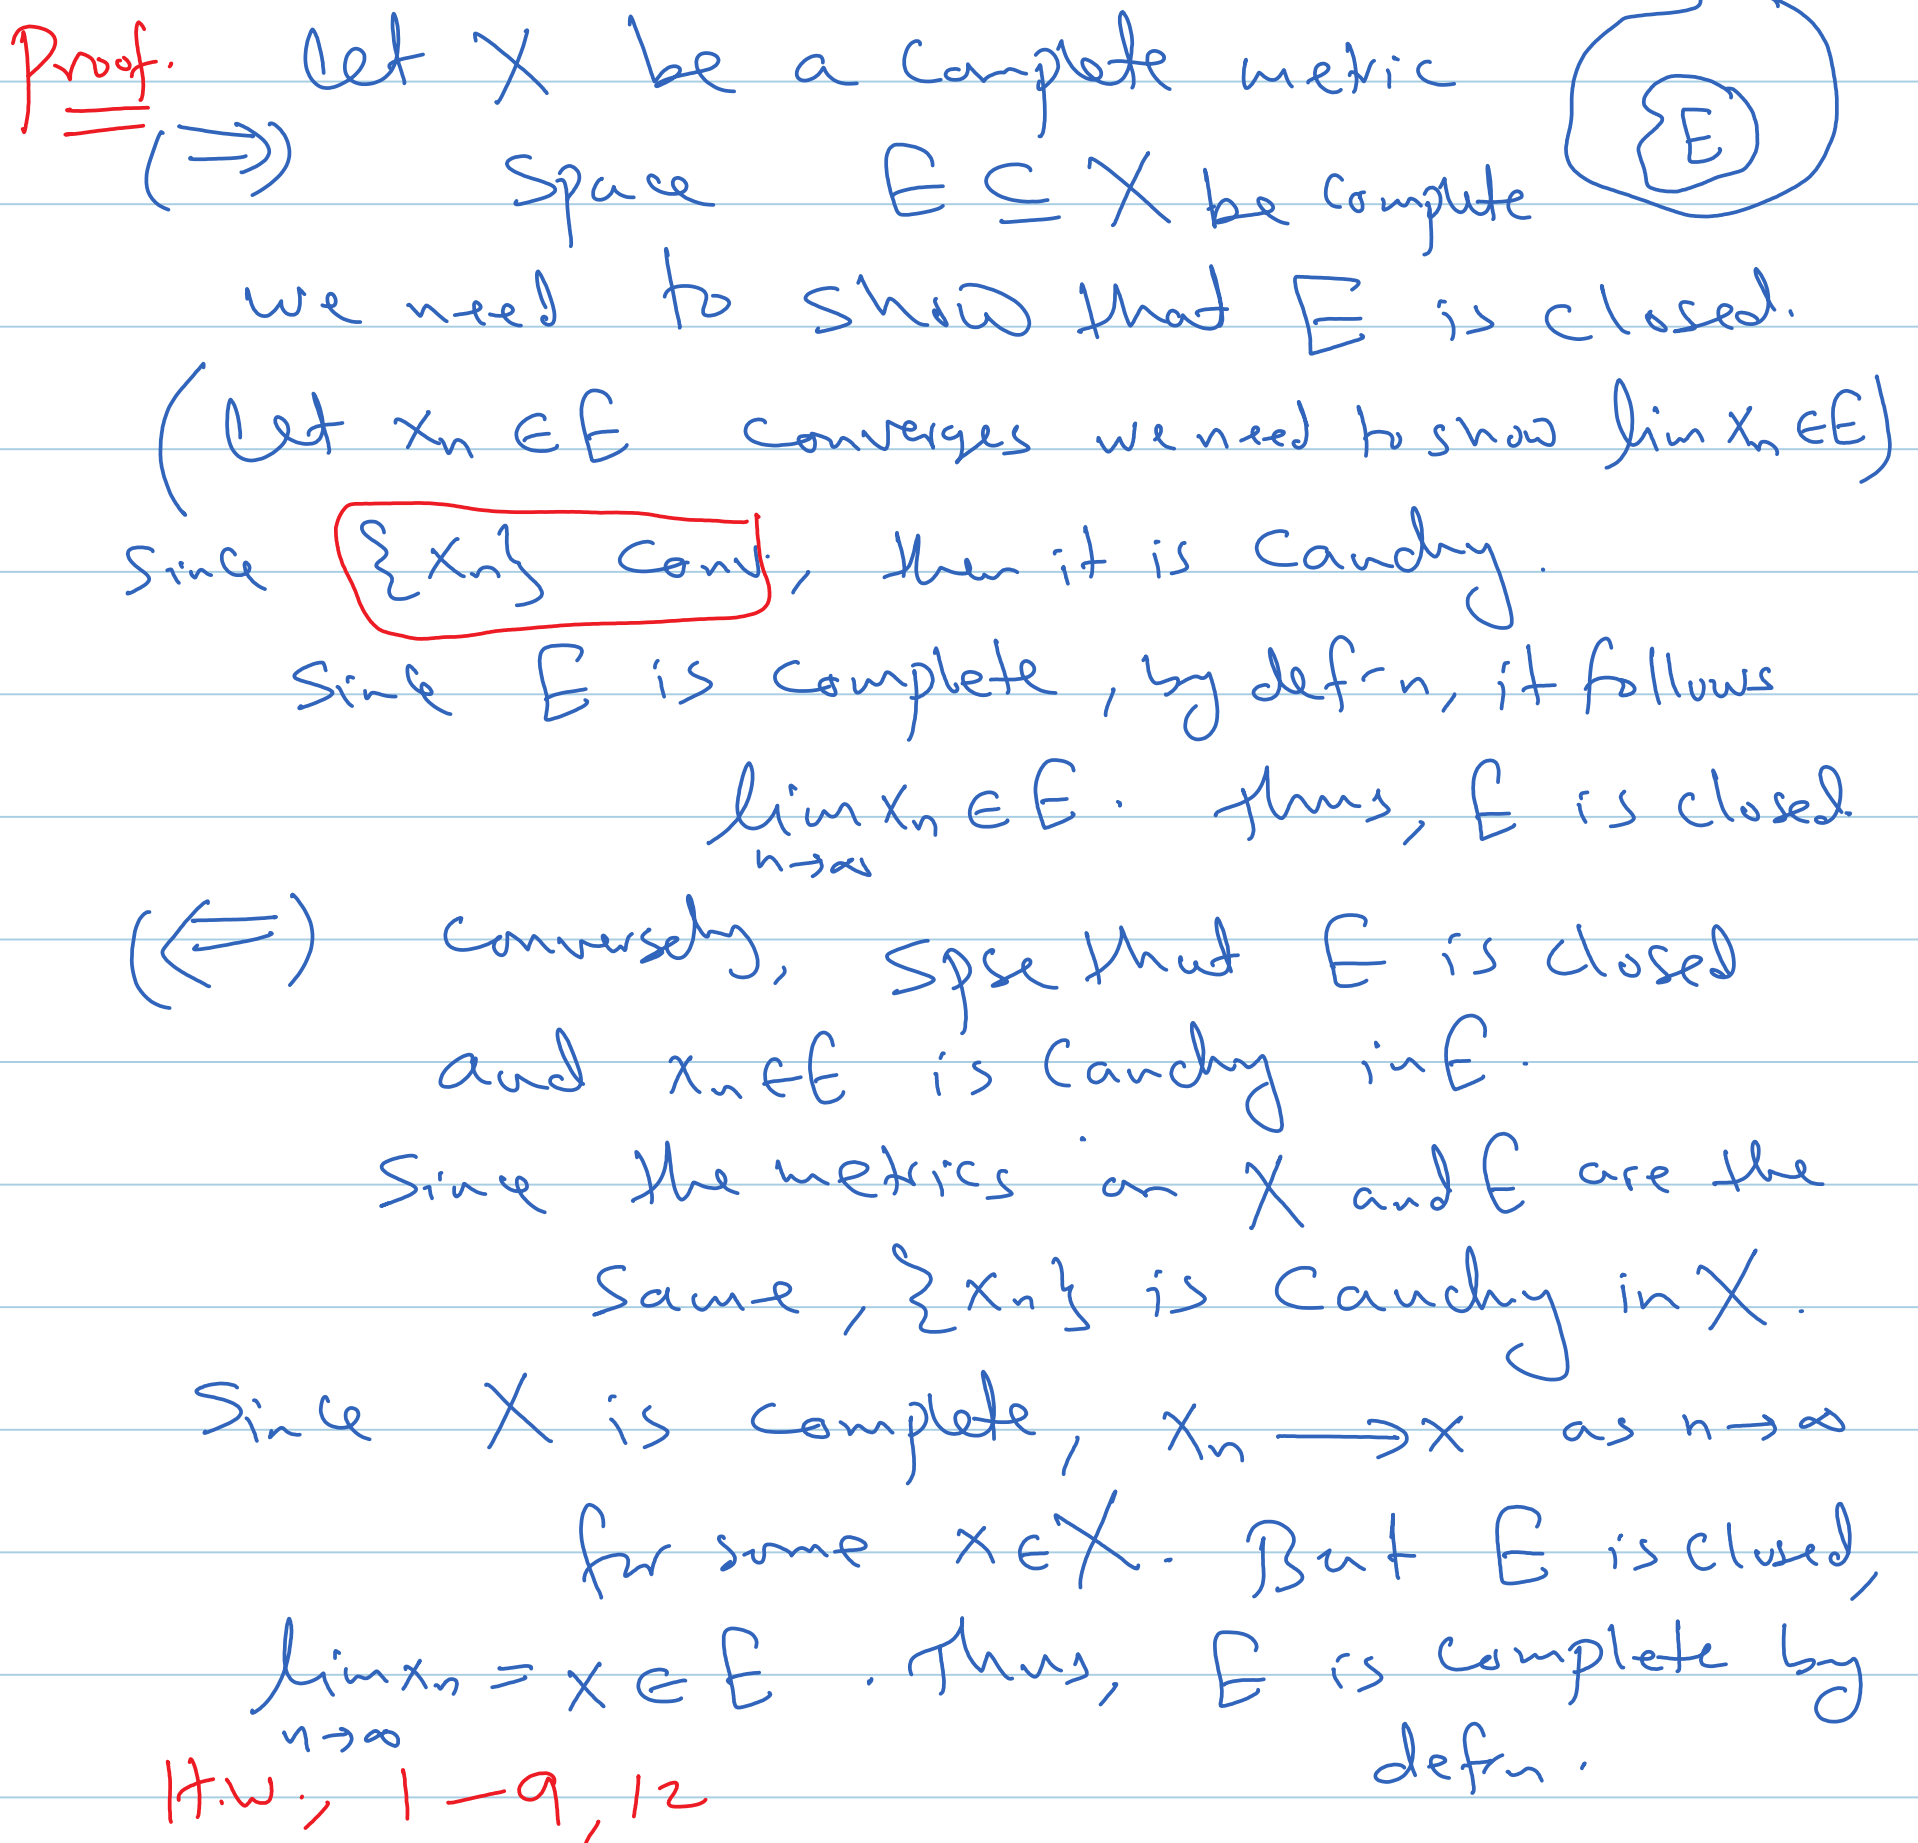 Proof. Let X be a complete metric
(⇒) space E ⊆ X be complete
E
we need to show that E is closed.
(Let xn ∈ E converges we need to show lim xn ∈ E)
since {xn} conv., then it is Cauchy.
Since E is complete, by defn, it follows
lim xn ∈ E. Thus, E is closed.
n→∞
(⇐) conversely, spse that E is closed
and xn ∈ E is Cauchy in E.
Since the metrics on X and E are the
same, {xn} is Cauchy in X.
Since X is complete, xn → x as n→∞
for some x ∈ X. But E is closed,
lim xn = x ∈ E. Thus, E is complete by
n→∞ defn.
H.W., 1 – 9, 12